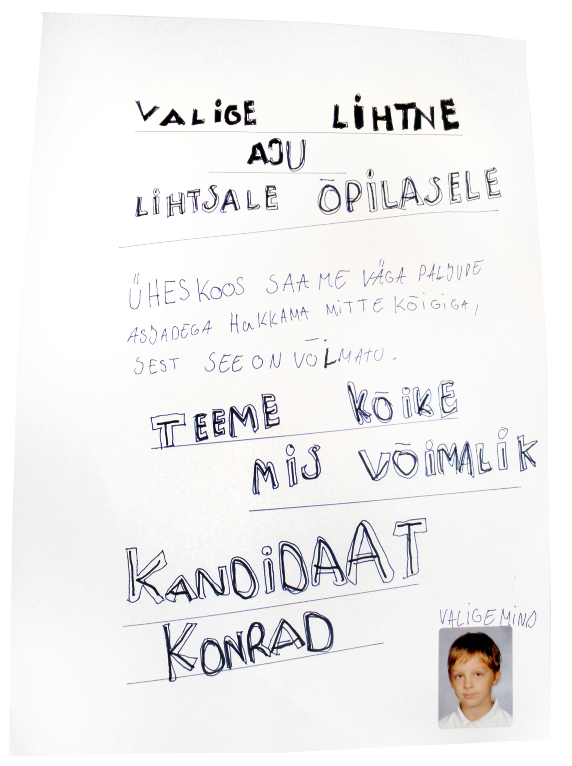 VALiGE LiHTNE
AJU
LiHTSALE ÕPiLASELE
ÜHESKOOS SAAME VÄGA PALJUDE
ASJADEGA HAKKAMA MiTTE KÕiGiGA,
SEST SEE ON VÕLMATU.
TEEME KÕiKE
MiS VÕiMALiK
KANDiDAAT
KONRAD
VALiGE MIND